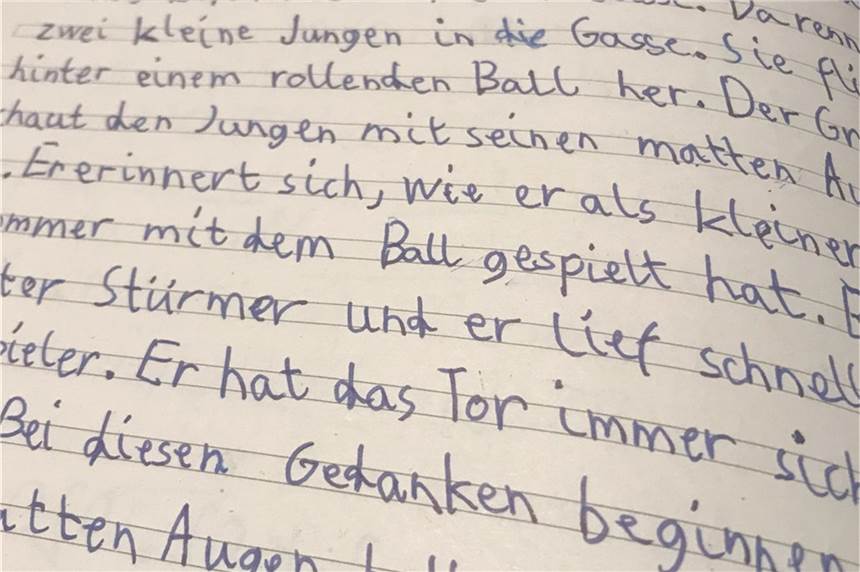 Da renn
zwei kleine Jungen in die Gasse. Sie fli
hinter einem rollenden Ball her. Der Gr
chaut den Jungen mit seinen matten Au
. Er erinnert sich, wie er als kleiner
ommer mit dem Ball gespielt hat. E
ter Stürmer und er lief schnell
pieler. Er hat das Tor immer sich
Bei diesen Gedanken beginnen
atten Augen